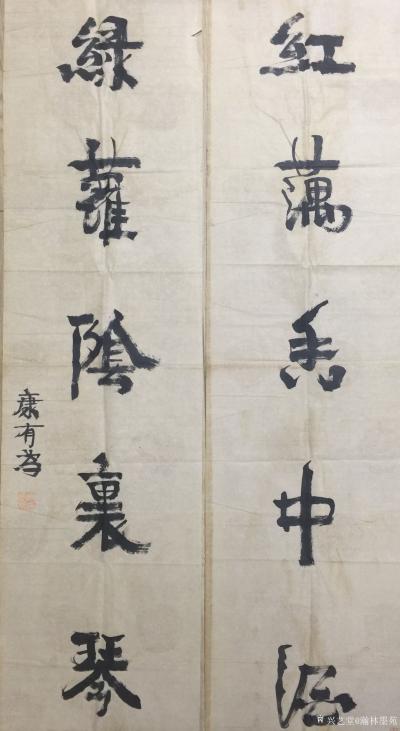 紅藕香中
綠蘿陰裏琴
康有為
兴之堂@瀚林墨苑